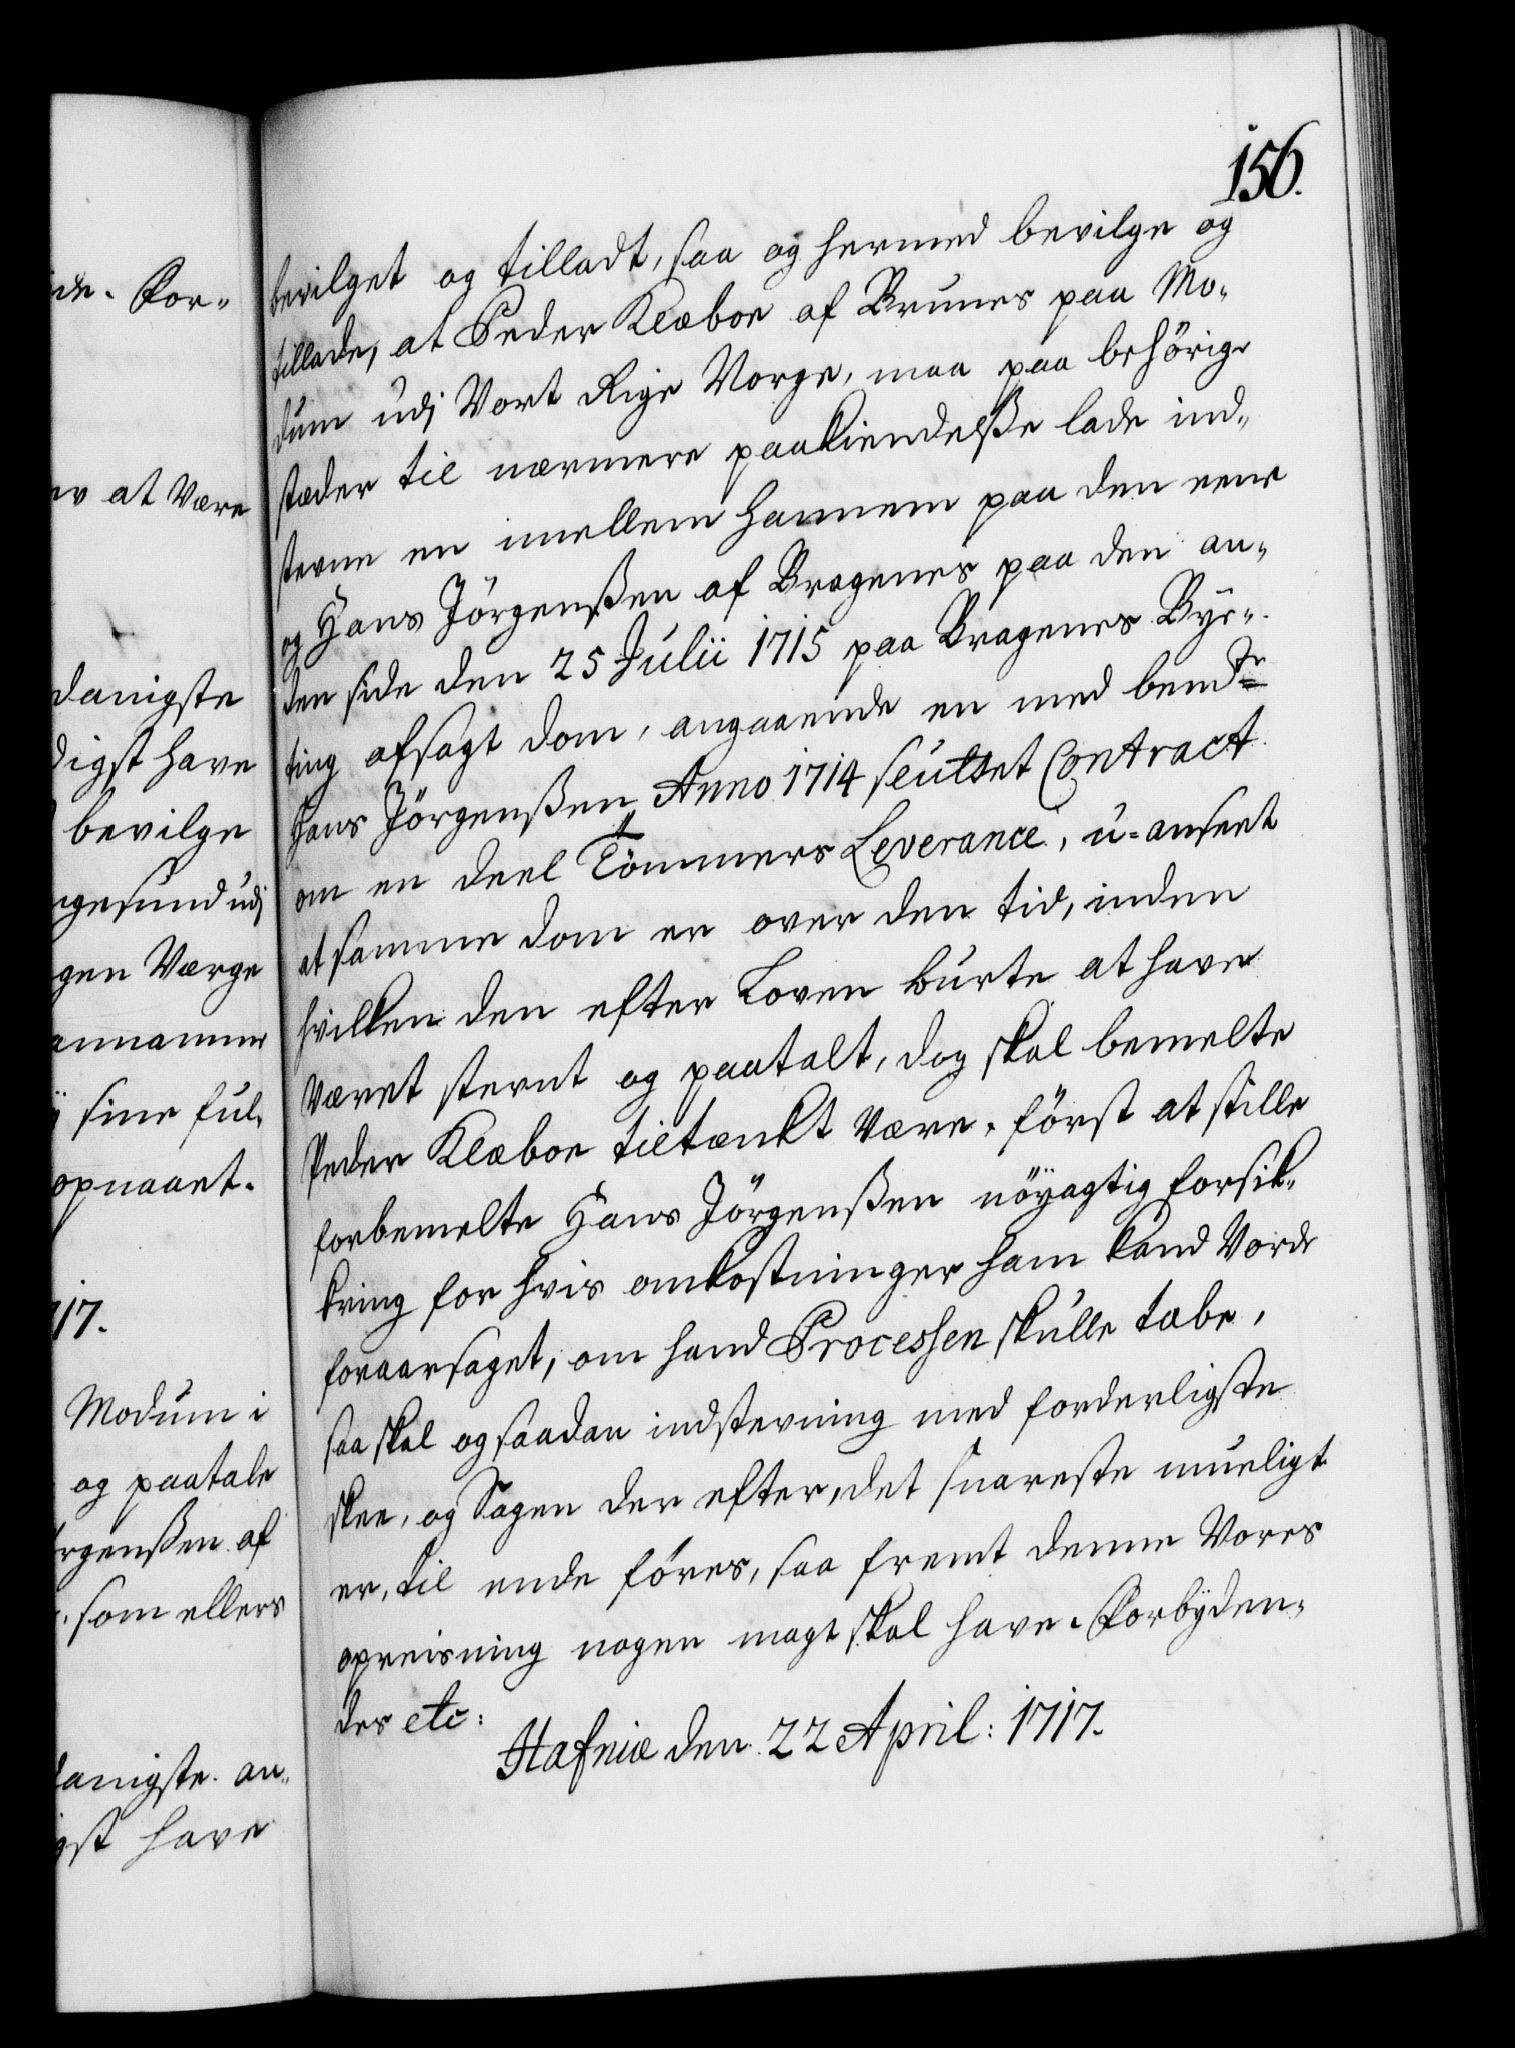 156.
ide. For-
at Være
danigste
digst have
bevilge
gesund udj
gen Værge
annammer
sine ful-
opnaaet.
17.
Modum i
og paatale
rgenßen af
som ellers
danigste an-
gst have
bevilget og tilladt, saa og hermed bevilge og
tillade, at Peder Klæboe af Brunes paa Mo-
dum udj Vort Rige Norge, maa paa behörige
stæder til nærmere paakiendelße lade ind-
stevne en imellem hannem paa den eene
og Hans Jörgenßen af Bragenes paa den an-
den side den 25 Julii 1715 paa Bragenes Bÿe-
ting afsagt dom, angaaende en med bemte
Hans Jörgenßen Anno 1714 sluttet Contract
om en deel Tömmers Leverance, u-anseet
at samme dom er over den tid, inden
hvilken den efter Loven burte at have
Været stevnt og paatalt, dog skal bemelte
Peder Klæboe tiltænkt Være, först at stille
forbemelte Hans Jörgenßen nöÿagtig forsik-
kring for hvis omkostninger ham kand Vorde
foraarsaget, om hand Processen skulle tabe,
saa skal og saadan indstevning med forderligste
skee, og Sagen der efter, det snareste mueligt
er, til ende föres, saa fremt denne Vores
opreisning nogen magt skal have. Forbÿden-
des etc:
Hafniæ den 22 April: 1717.